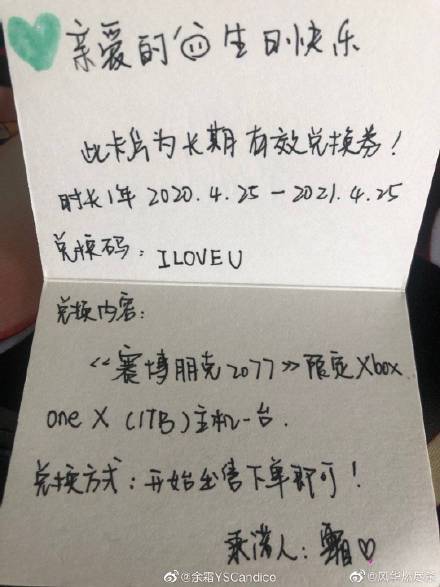 亲爱的 生日快乐
此卡片为长期有效兑换券!
时长1年 2020.4.25-2021.4.25
兑换码: ILOVEU
兑换内容:
《赛博朋克2077》限定Xbox
one X (1TB)主机一台.
兑换方式:开始出售下单即可!
承诺人:霜♡
@余霜YSCandice
@风华燃尽